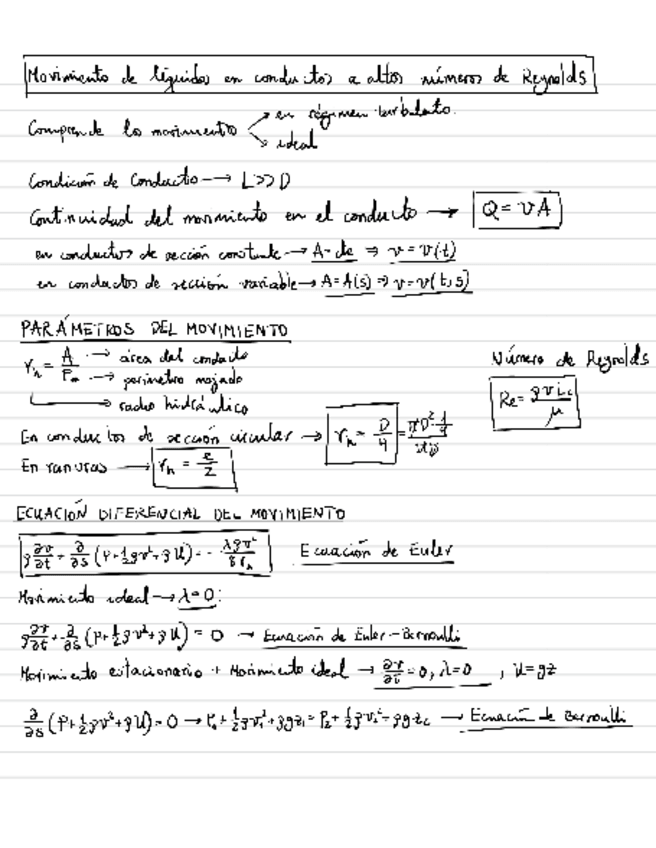 Movimiento de líquidos en conductos a altos números de Reynolds
Comprende los movimientos → en régimen turbulento.
→ ideal
Condición de Conducto → L>>D
Continuidad del movimiento en el conducto → Q = vA
en conductos de sección constante → A=cte ⇒ v = v(t)
en conductos de sección variable → A=A(s) ⇒ v=v(t,s)
PARÁMETROS DEL MOVIMIENTO
r_h = A/P_m → área del conducto
→ perímetro mojado
→ radio hidráulico
Número de Reynolds
Re = ρvL_c/μ
En conductos de sección circular → r_h = D/4 = πD²·1/4 / πD
En ranuras → r_h = e/2
ECUACIÓN DIFERENCIAL DEL MOVIMIENTO
ρ ∂v/∂t + ∂/∂s (P+½ρv²+ρU) = - λρv²/8r_h Ecuación de Euler
Movimiento ideal → λ=0:
ρ ∂v/∂t + ∂/∂s (P+½ρv²+ρU) = 0 → Ecuación de Euler-Bernoulli
Movimiento estacionario + Movimiento ideal → ∂v/∂t = 0, λ=0 , U=gz
∂/∂s (P+½ρv²+ρU) = 0 → P₁+½ρv₁²+ρgz₁ = P₂+½ρv₂²+ρgz₂ → Ecuación de Bernoulli